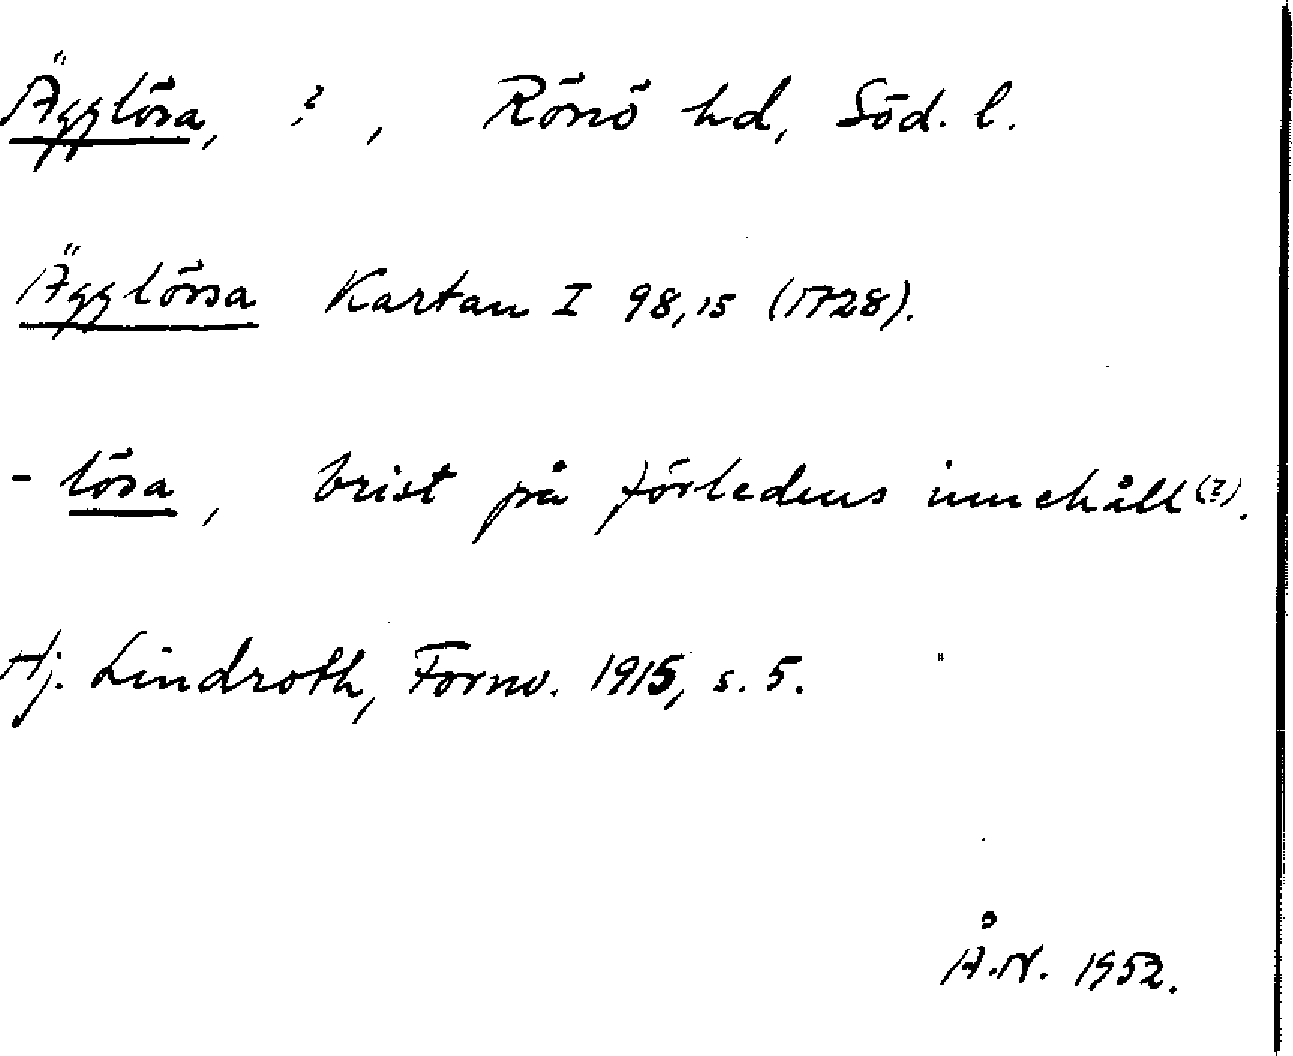 Ägglösa, ?, Rönö hd, Söd. l.
Ägglörsa Kartan I 98,15 (1728).
-lösa, brist på förledens innehåll(?).
Hj. Lindroth, Fornv. 1915, s. 5.
Å.N. 1952.